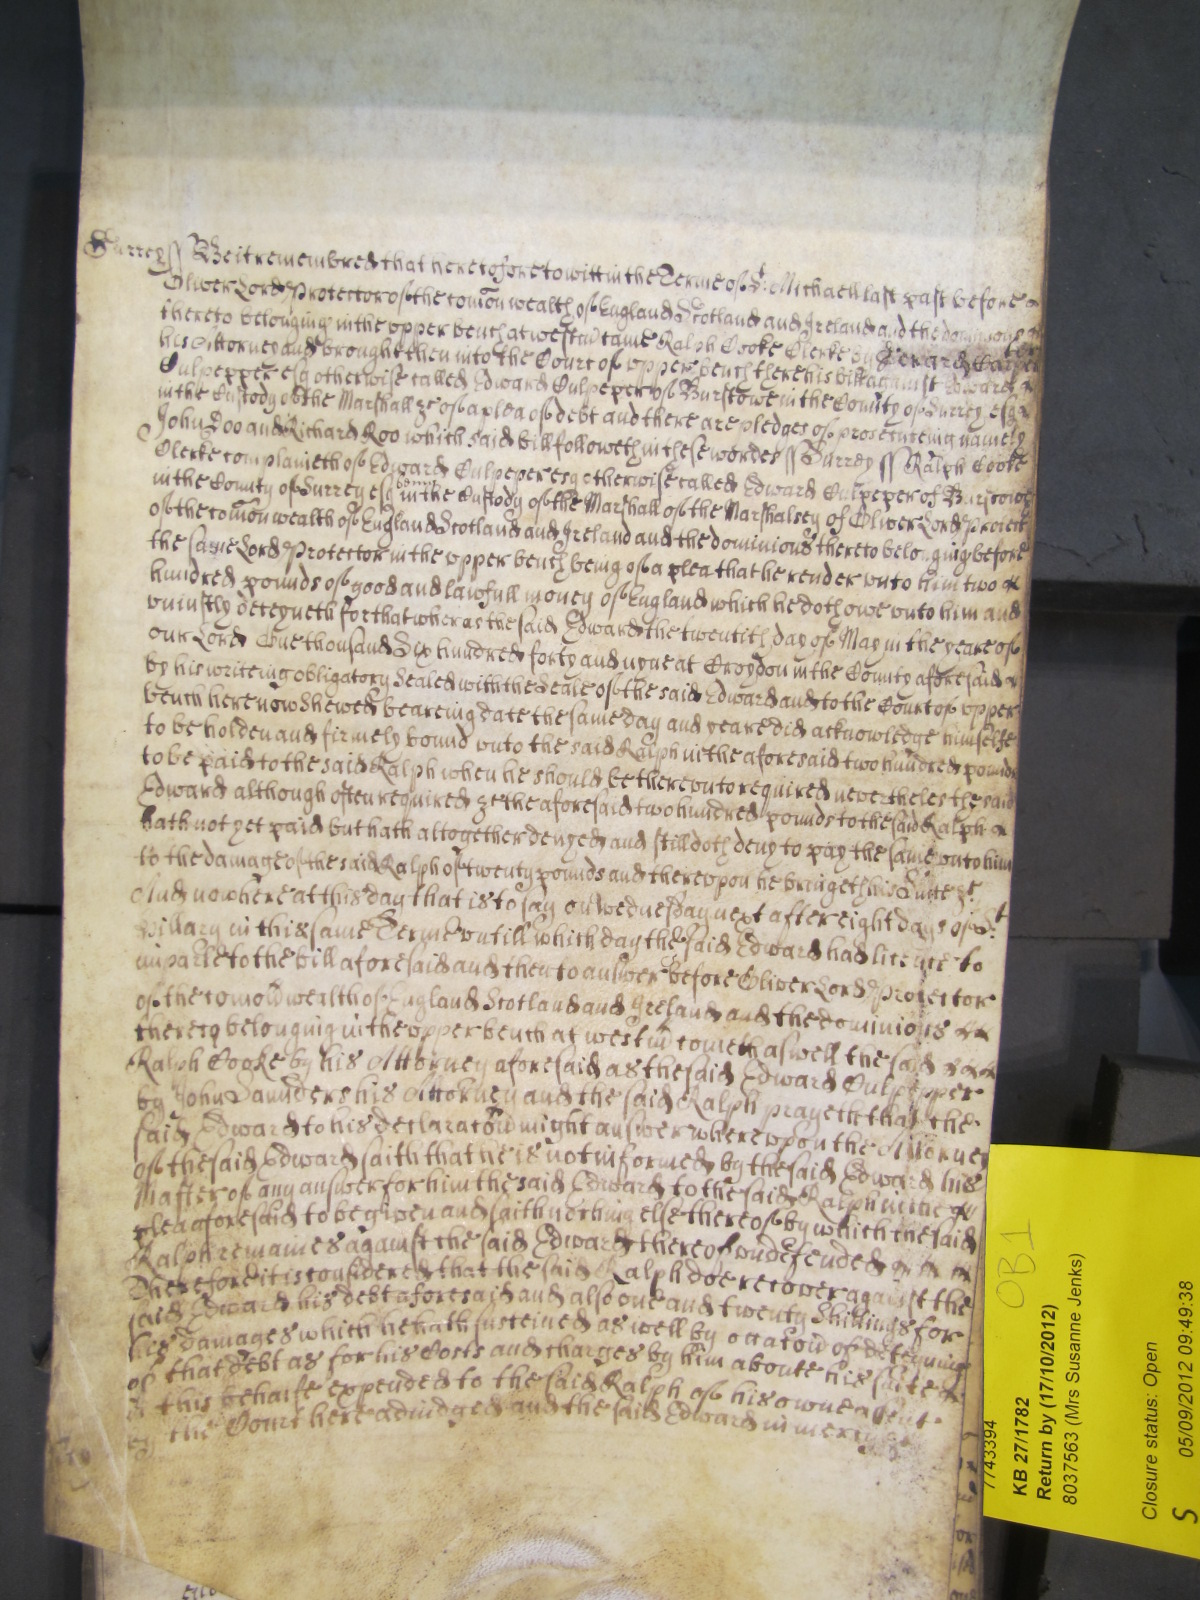 Surrey ss Be it remembred that heretofore to witt in the Terme of St. Michaell last past before
Oliver Lord Protector of the comon wealth of England Scotland and Ireland and the dominions
thereto belonging in the upper bench at westm came Ralph Cooke Clerke by
his Attorney and brought then into the Court of upper bench there his bill against Edward
Culpepper esq otherwise called Edward Culpeper of Burstowe in the County of Surrey esq
in the Custody of the Marshall &c of a plea of debt and there are pledges of prosecuteing namely
John Doo and Richard Roo which said bill followeth in these wordes ss Surrey ss Ralph Cooke
Clerke complaineth of Edward Culpeper esq otherwise called Edward Culpeper of Burstowe
in the County of Surrey esq being in the Custody of the Marshall of the Marshalsey of Oliver Lord Protect
of the comon wealth of England Scotland and Ireland and the dominions thereto belonging before
the same Lord Protector in the upper bench being of a plea that he render unto him two
hundred pounds of good and lawfull money of England which he doth owe unto him and
uniustly deteyneth for that wheras the said Edward the twentith day of May in the yeare of
our Lord One thousand Six hundred forty and nyne at Croydon in the County aforesaid
by his writeing obligatory Sealed with the Seale of the said Edward and to the Court of upper
bench here now shewed beareing date the same day and yeare did acknowledge himselfe
to be holden and firmely bound unto the said Ralph in the aforesaid two hundred pounds
to be paid to the said Ralph when he should be thereunto required nevertheles the said
Edward although often required &c the aforesaid two hundred pounds to the said Ralph
hath not yet paid but hath altogether denyed and still doth deny to pay the same unto him
to the damage of the said Ralph of twenty pounds and thereupon he bringeth his Suite &c
And now here at this day that is to say on Wednesday next after eight dayes of St
Hillary in this same Terme untill which day the said Edward had licence to
imparle to the bill aforesaid and then to answer before Oliver Lord Protector
of the comon wealth of England Scotland and Ireland and the dominions
thereto belonging in the upper bench at westm cometh aswell the said
Ralph Cooke by his Attorney aforesaid as the said Edward Culpepper
by John Saunders his Attorney and the said Ralph prayeth that the
said Edward to his declaracon might answer whereupon the Attorney
of the said Edward saith that he is not informed by the said Edward his
Master of any answer for him the said Edward to the said Ralph in the
plea aforesaid to be given and saith nothing else thereof by which the said
Ralph remaines against the said Edward thereof undefended
Therefore it is considered that the said Ralph doe recover against the
said Edward his debt aforesaid and also one and twenty Shillings for
his damages which he hath susteined as well by occacon of deteyning
of that debt as for his Costs and charges by him aboute his suite
in this behalfe expended to the said Ralph of his owne assent
by the Court here adiudged and the said Edward in mercy &c
7743394
KB 27/1782
Return by (17/10/2012)
8037563 (Mrs Susanne Jenks)
Closure status: Open
05/09/2012 09:49:38
S
OB1